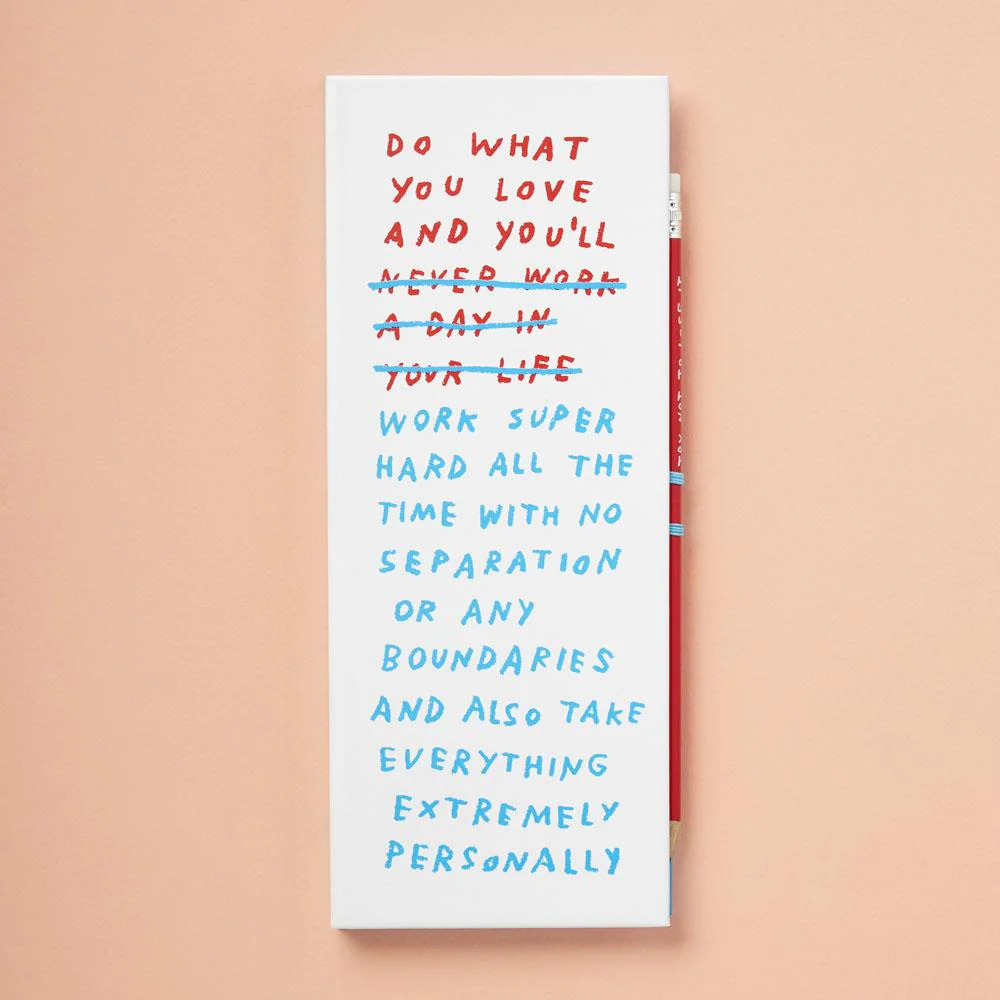 DO WHAT
YOU LOVE
AND YOU'LL
NEVER WORK
A DAY IN
YOUR LIFE
WORK SUPER
HARD ALL THE
TIME WITH NO
SEPARATION
OR ANY
BOUNDARIES
AND ALSO TAKE
EVERYTHING
EXTREMELY
PERSONALLY
TRY NOT TO LOSE IT